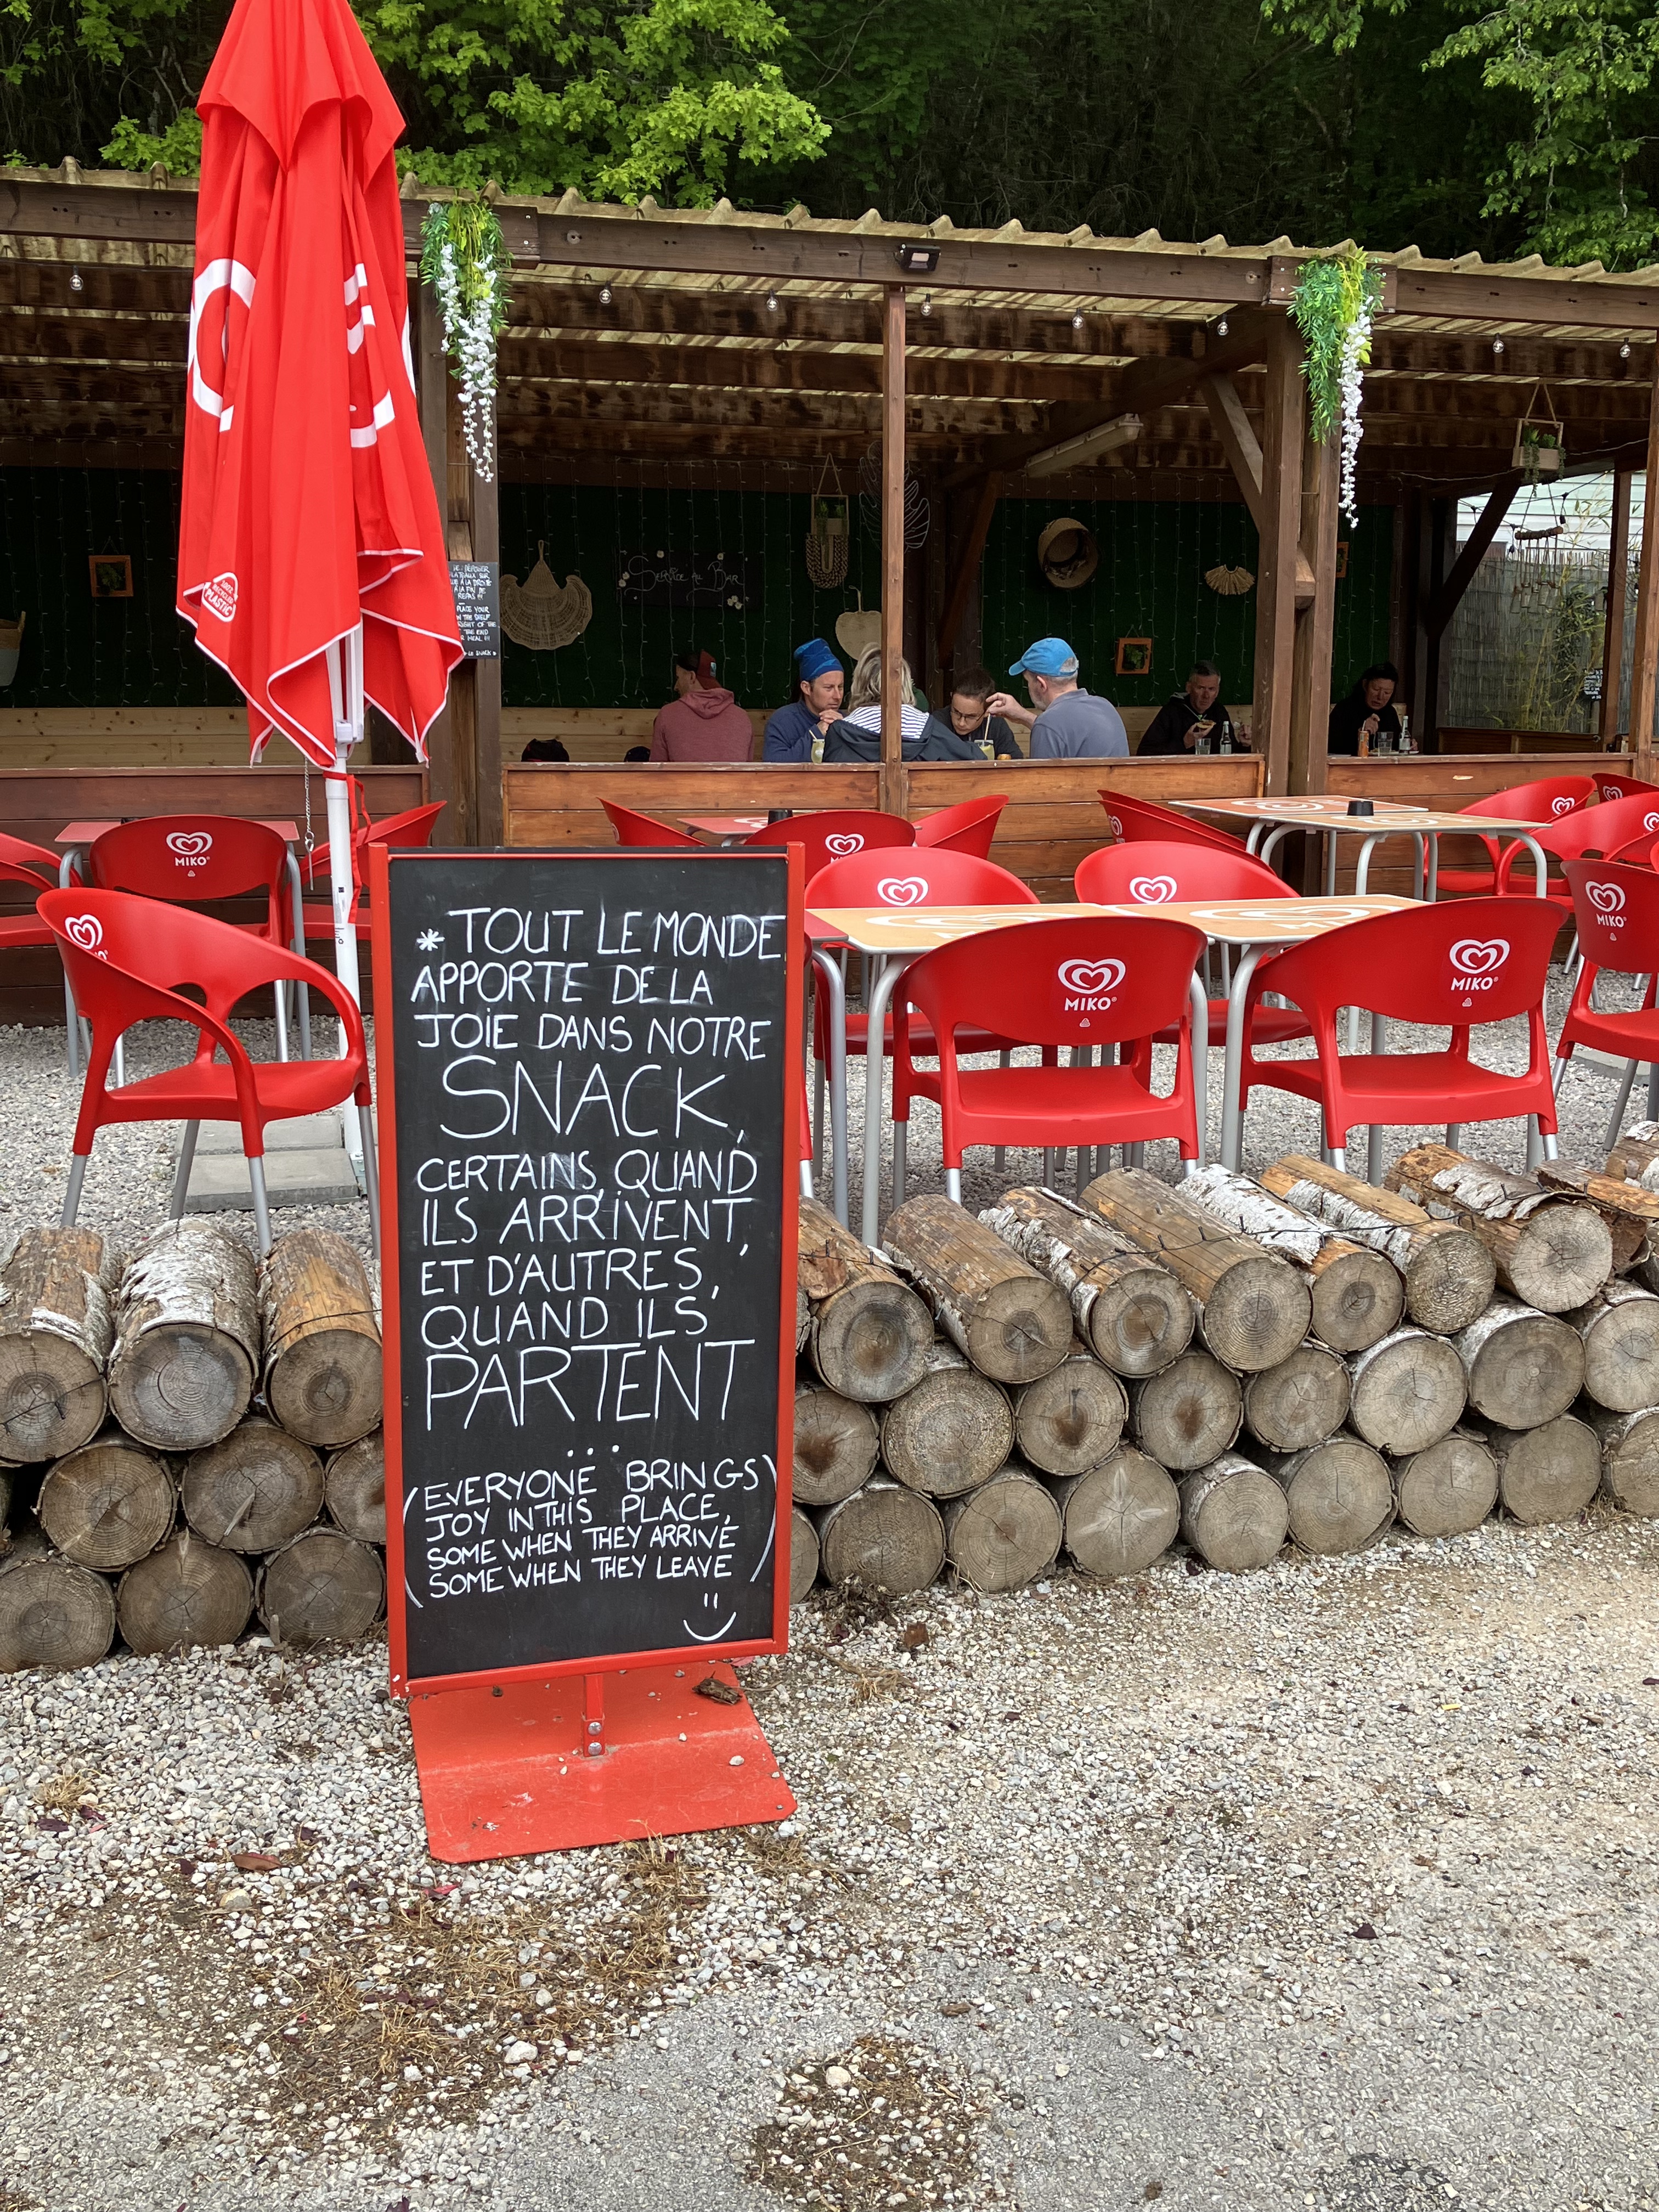 SERVICE AU BAR
PLASTIC
MIKO
MIKO
MIKO
MIKO
MIKO
* TOUT LE MONDE
APPORTE DE LA
JOIE DANS NOTRE
SNACK,
CERTAINS, QUAND
ILS ARRIVENT,
ET D'AUTRES,
QUAND ILS
PARTENT
...
(EVERYONE BRINGS
JOY IN THIS PLACE,
SOME WHEN THEY ARRIVE
SOME WHEN THEY LEAVE)